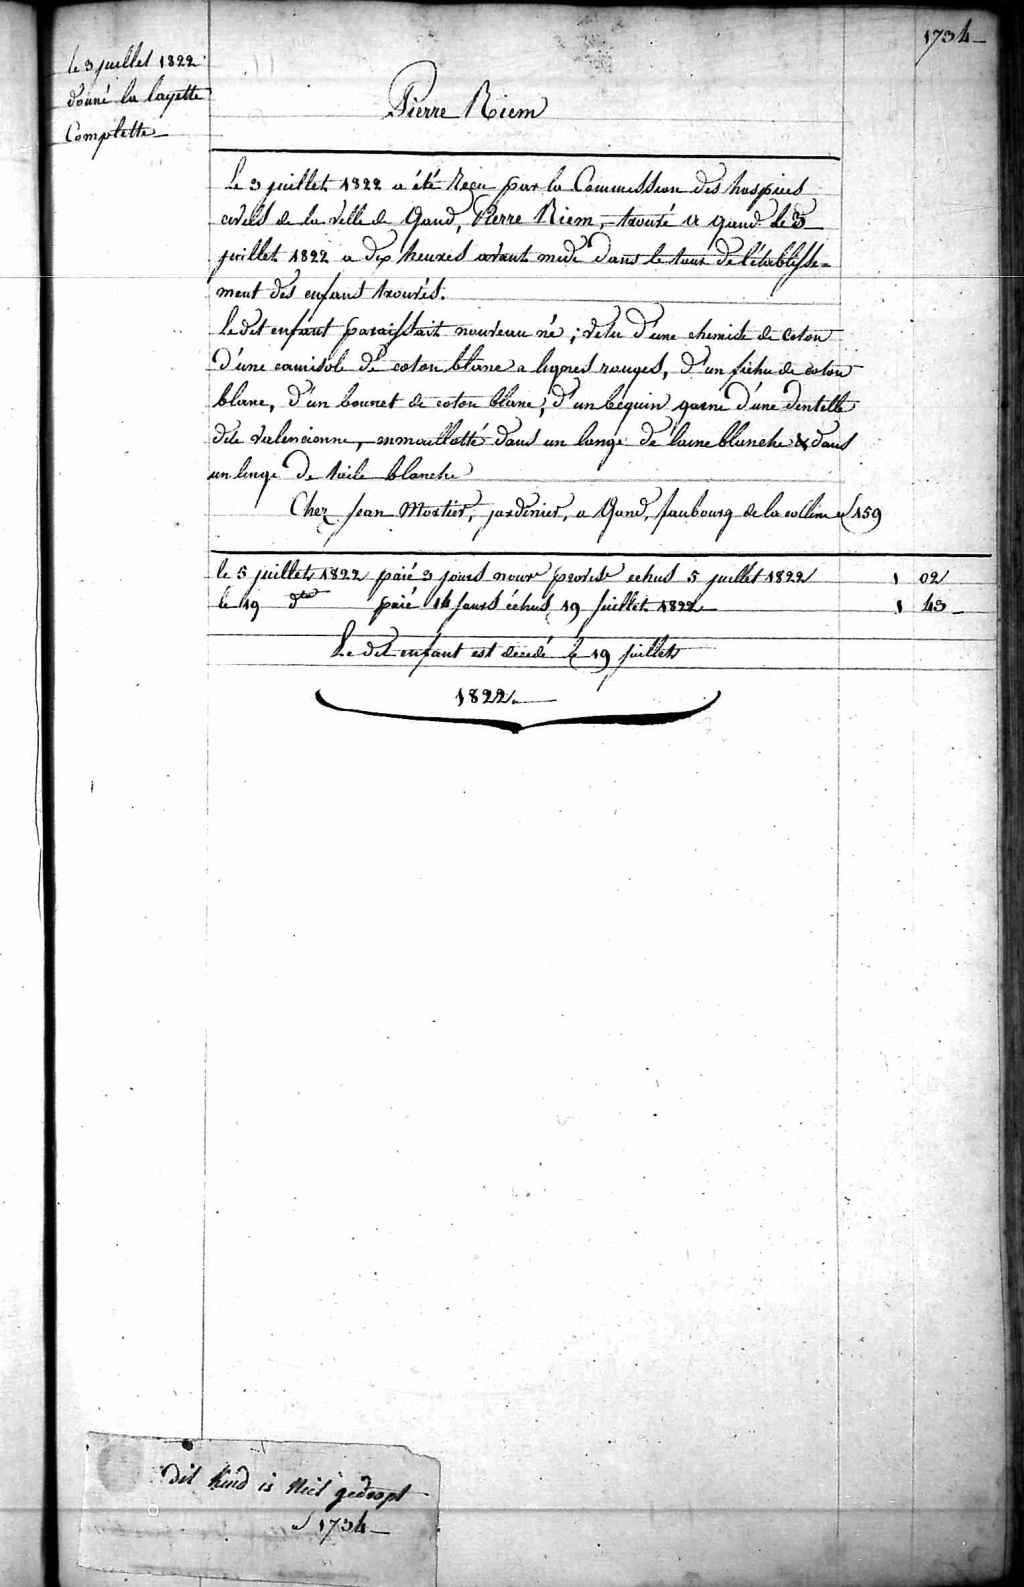 1734
le 3 juillet 1822
donné la layette
Complette
Pierre Riem
Le 3 juillet 1822 a été Reçu par la Commission des hospices
civils de la ville de Gand, Pierre Riem, trouvé a gand le 3
juillet 1822 a dix heures avant midi dans le tour de l'établisse=
ment des enfans trouvés.
Le dit enfant paraissait nouveau né; vetu d'une chemise de coton
d'une camisole de coton blanc a lignes rouges, d'un fichu de coton
blanc, d'un bonnet de coton blanc, d'un beguin garni d'une dentelle
dite valencienne, enmaillotté dans un lange de laine blanche & dans
un linge de toile blanche
Chez Jean Mortier, jardinier, a Gand, faubourg de la colline 159
le 5 juillet 1822 paié 3 jours nour.e provis.e echus 5 juillet 1822 1 02
le 19 d.to paié 14 jours échus 19 juillet 1822 1 43
Le dit enfant est decedé le 19 juillet
1822.
dit kind is niet gedoopt
1734